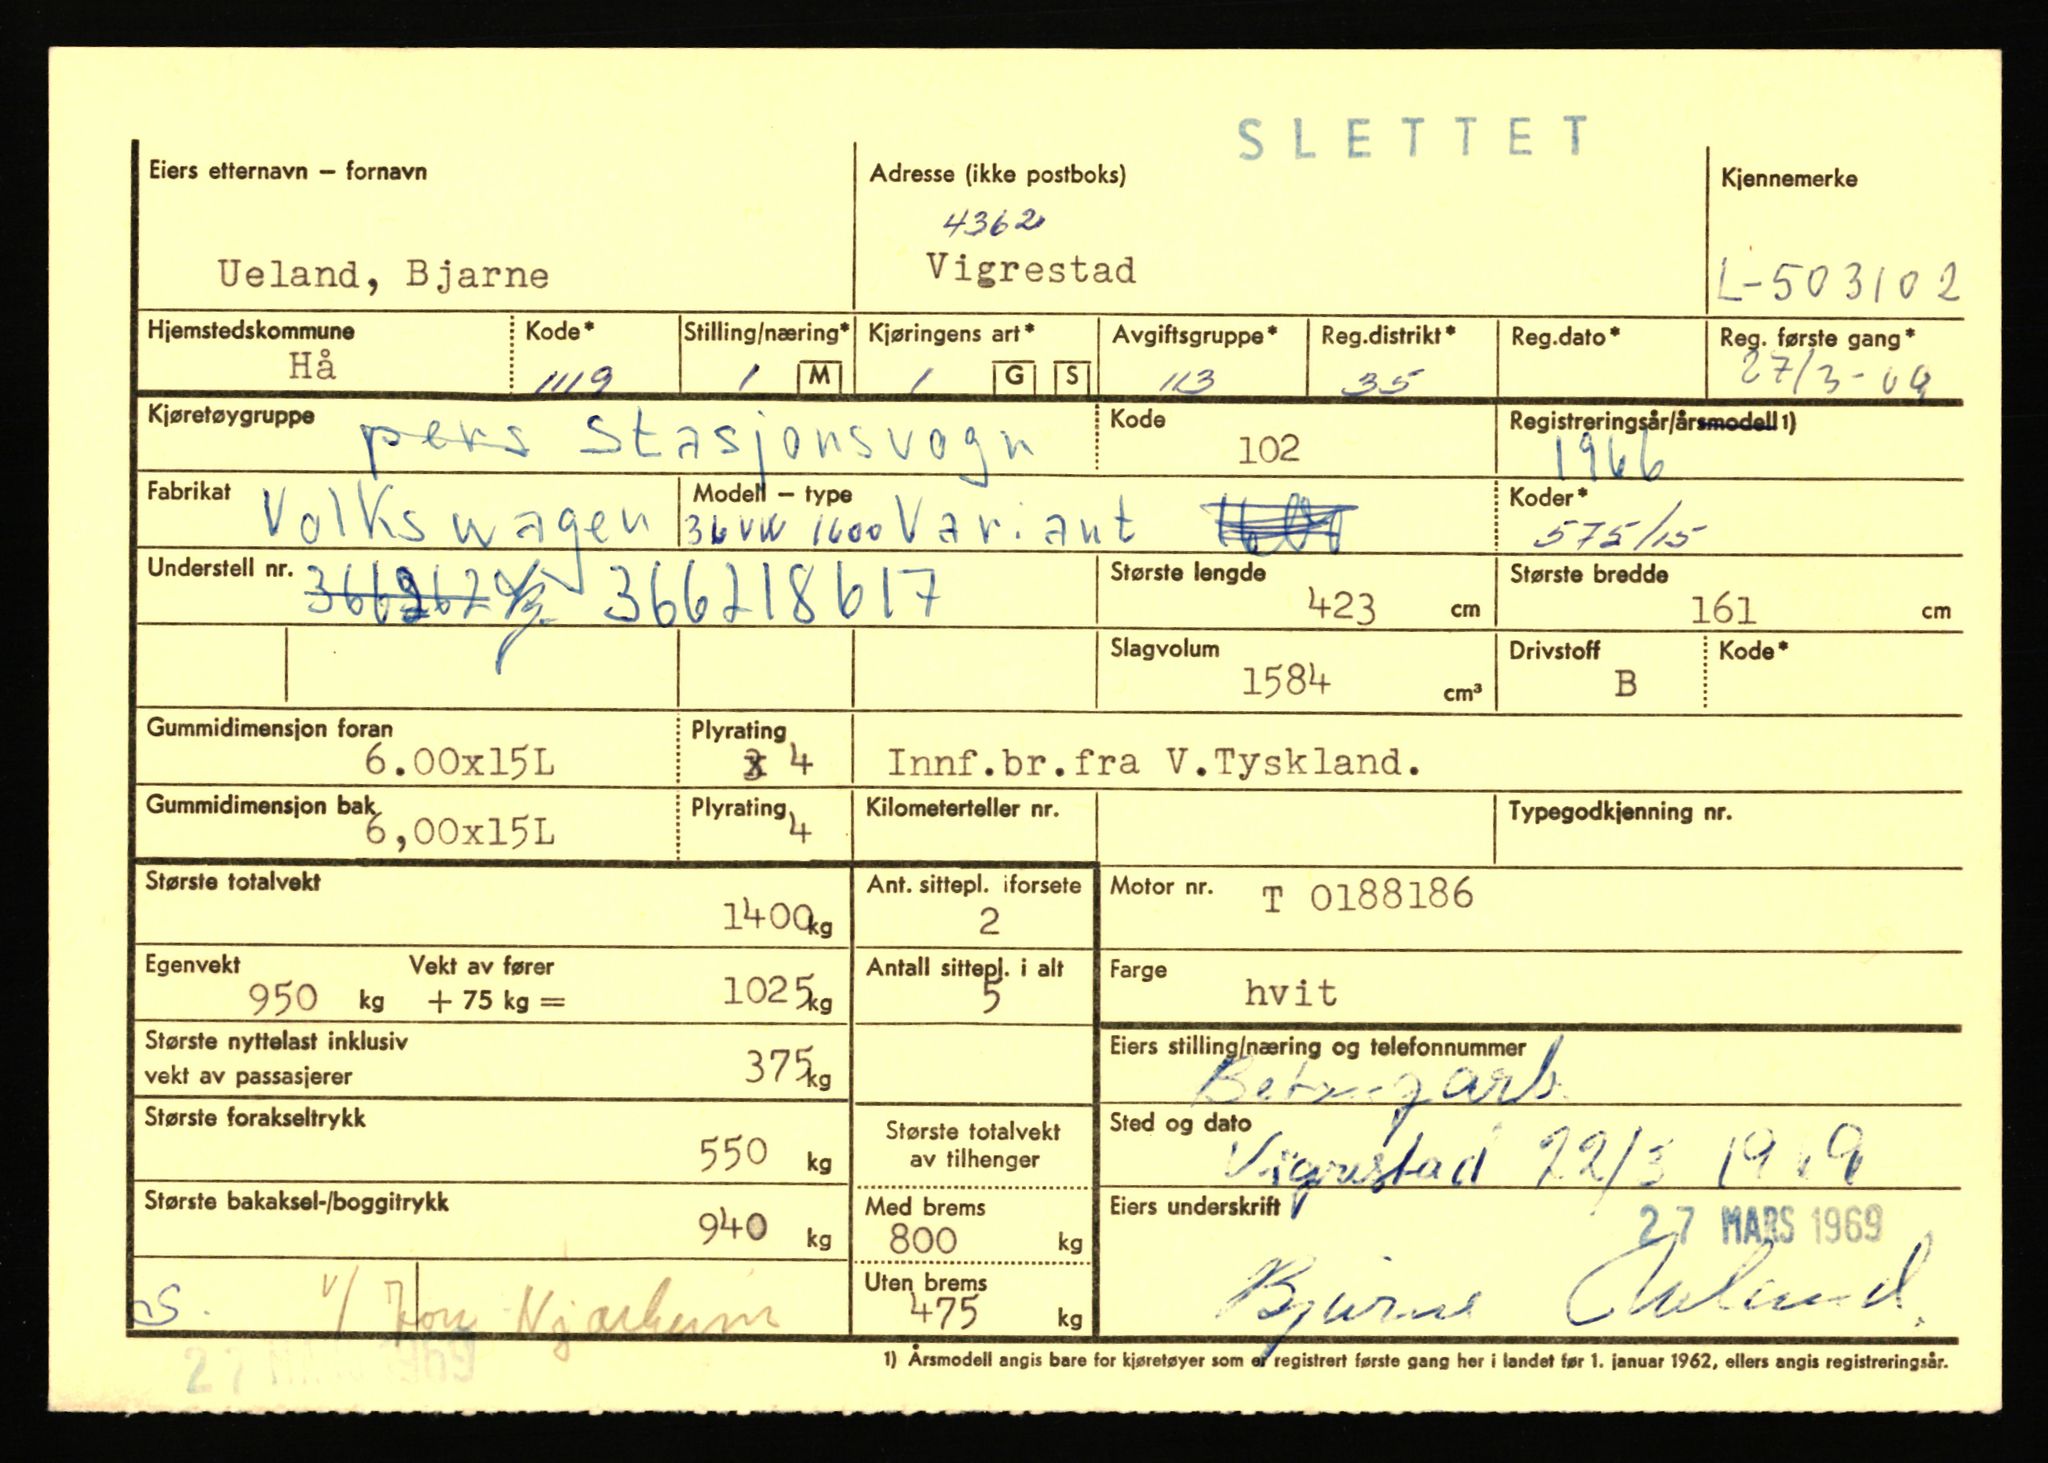 SLETTET
Eiers etternavn – fornavn
Adresse (ikke postboks)
Kjennemerke
4362
Ueland, Bjarne
Vigrestad
L-503102
Hjemstedskommune
Kode*
Stilling/næring*
Kjøringens art*
Avgiftsgruppe*
Reg.distrikt*
Reg.dato*
Reg. første gang*
Hå
1119
1 M
1 G S
113
35
27/3-69
Kjøretøygruppe
pers stasjonsvogn
Kode
102
Registreringsår/årsmodell 1)
1966
Fabrikat
Volkswagen
Modell – type
36 VW 1600 Variant
Koder*
575/15
Understell nr.
366218617
Største lengde
423 cm
Største bredde
161 cm
Slagvolum
1584 cm³
Drivstoff
B
Kode*
Gummidimensjon foran
6.00x15L
Plyrating
4
Innf.br.fra V.Tyskland.
Gummidimensjon bak
6,00x15L
Plyrating
4
Kilometerteller nr.
Typegodkjenning nr.
Største totalvekt
1400 kg
Ant. sittepl. iforsete
2
Motor nr.
T 0188186
Egenvekt
950 kg
Vekt av fører
+ 75 kg =
1025 kg
Antall sittepl. i alt
5
Farge
hvit
Største nyttelast inklusiv
vekt av passasjerer
375 kg
Eiers stilling/næring og telefonnummer
Største forakseltrykk
550 kg
Største totalvekt
av tilhenger
Sted og dato
Vigrestad 22/3 1969
Største bakaksel-/boggitrykk
940 kg
Med brems
800 kg
Eiers underskrift
27 MARS 1969
Bjarne Ueland
Uten brems
475 kg
v/ Njærheim
1) Årsmodell angis bare for kjøretøyer som er registrert første gang her i landet før 1. januar 1962, ellers angis registreringsår.